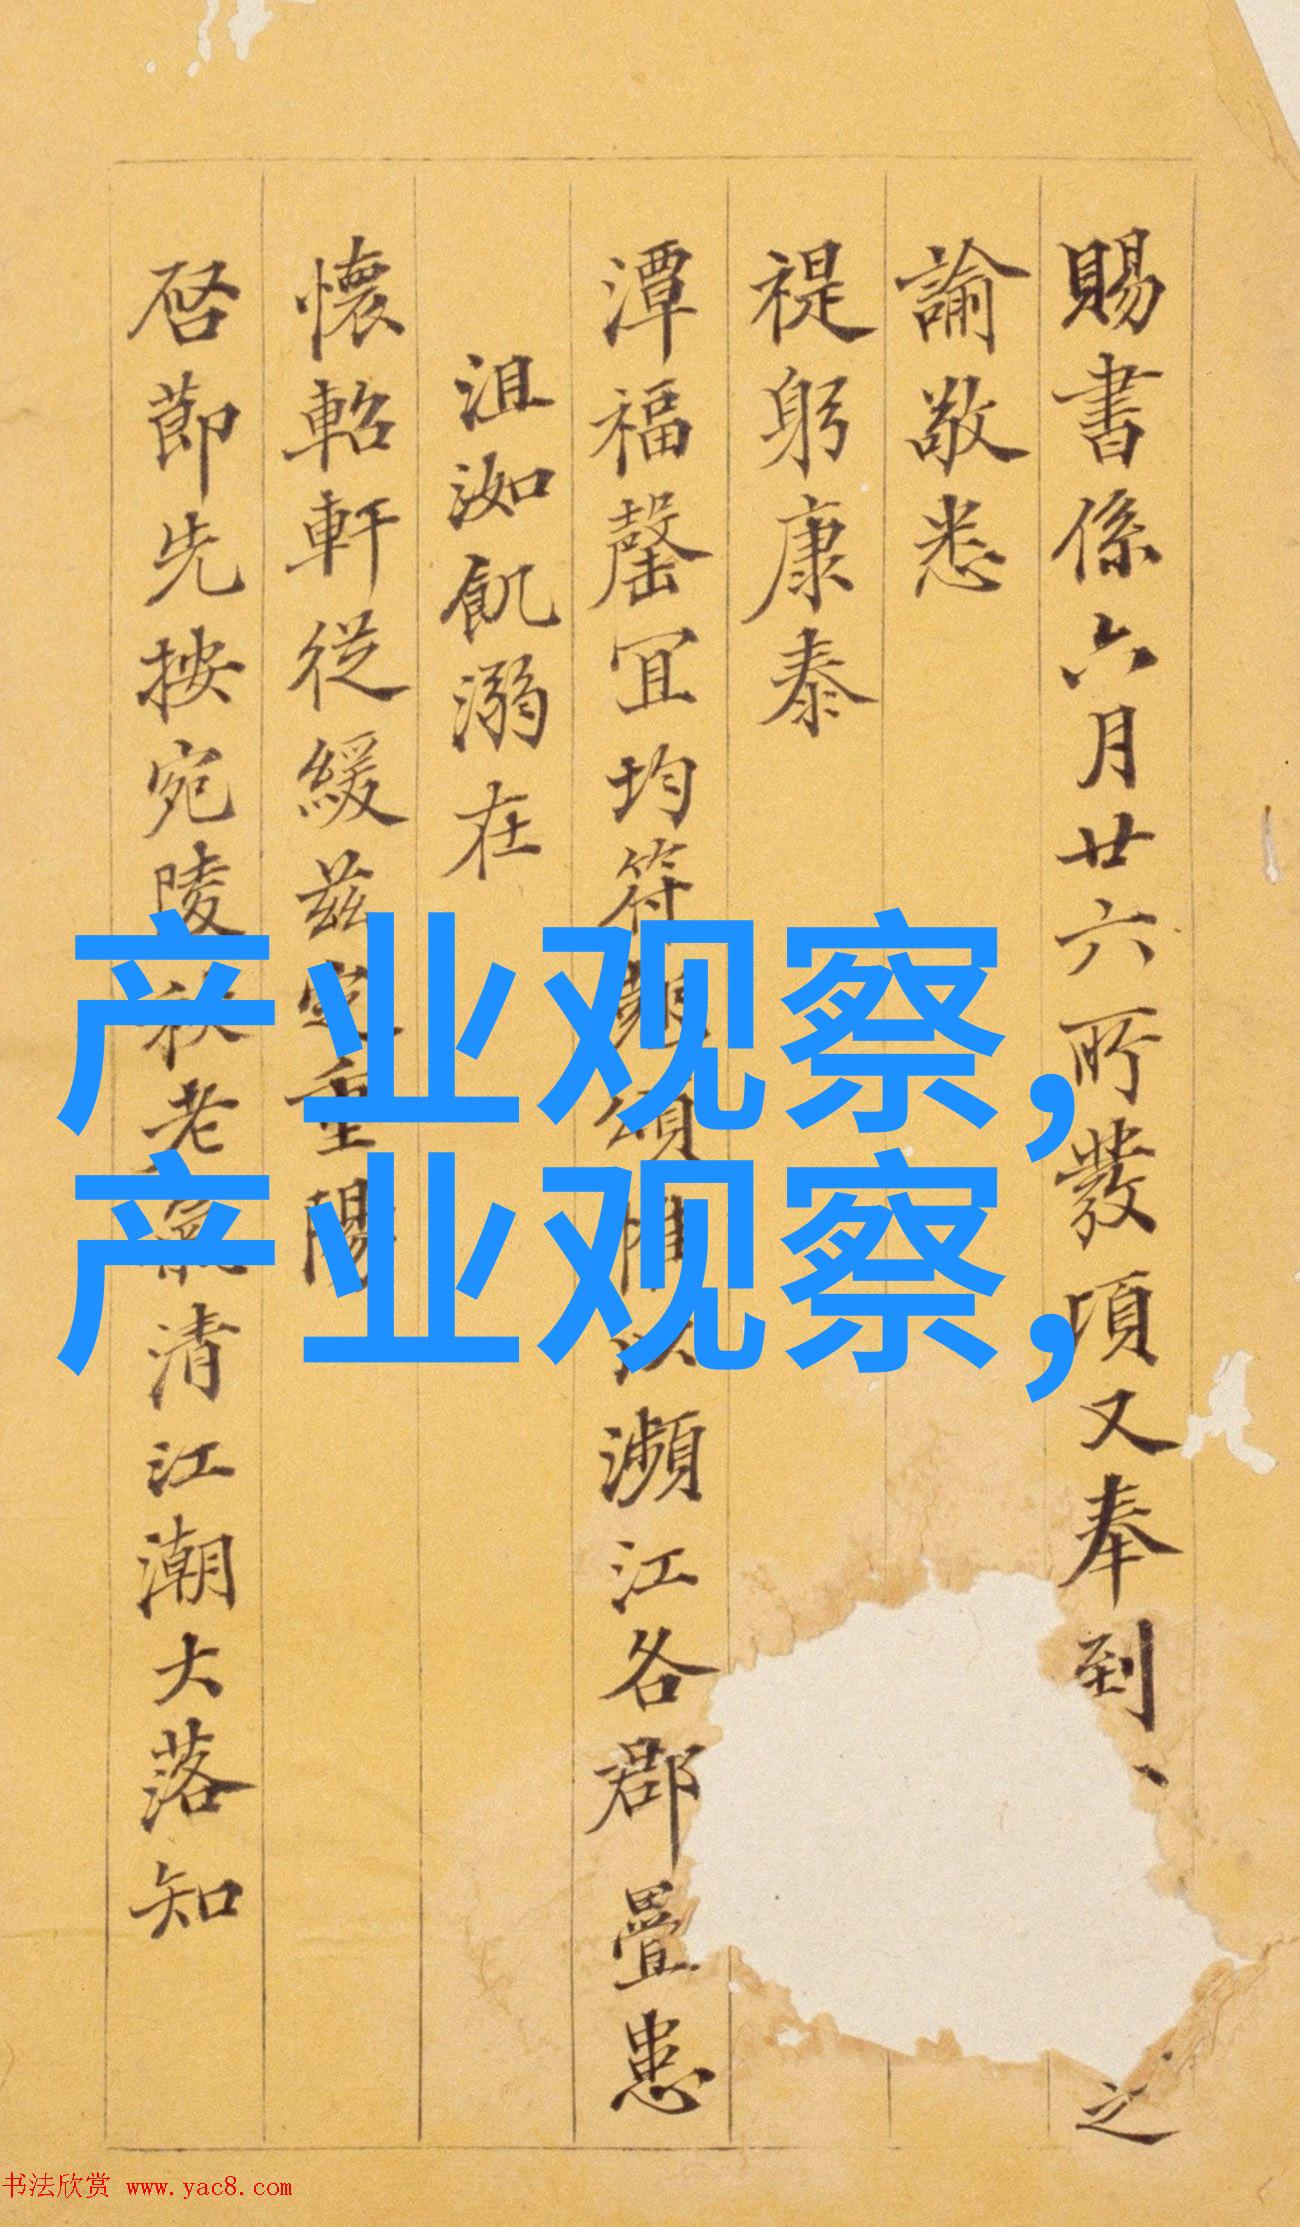 賜書係六月廿六所發項又奉到
之
諭敬悉
禔躬康泰
潭福罄宜均符頌惟以瀕江各郡疊患
沮洳飢溺在
懷軺軒從緩茲定重陽
啓節先按宛陵秋老氣清江潮大落知
产业观察,
产业观察,
书法欣赏 www.yac8.com